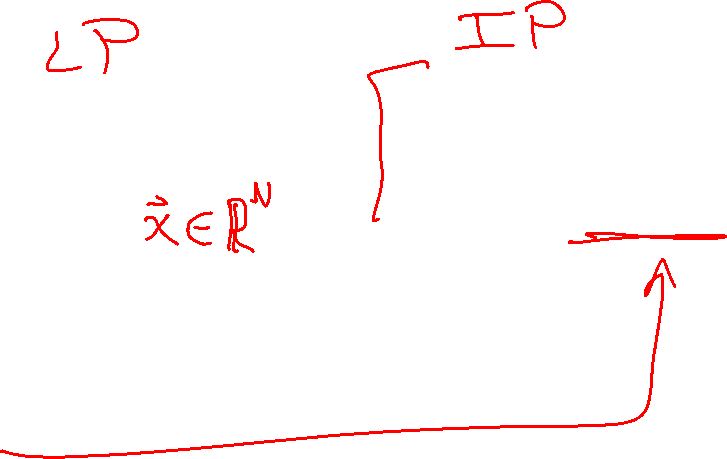 LP
IP
x⃗ ∈ ℝᴺ